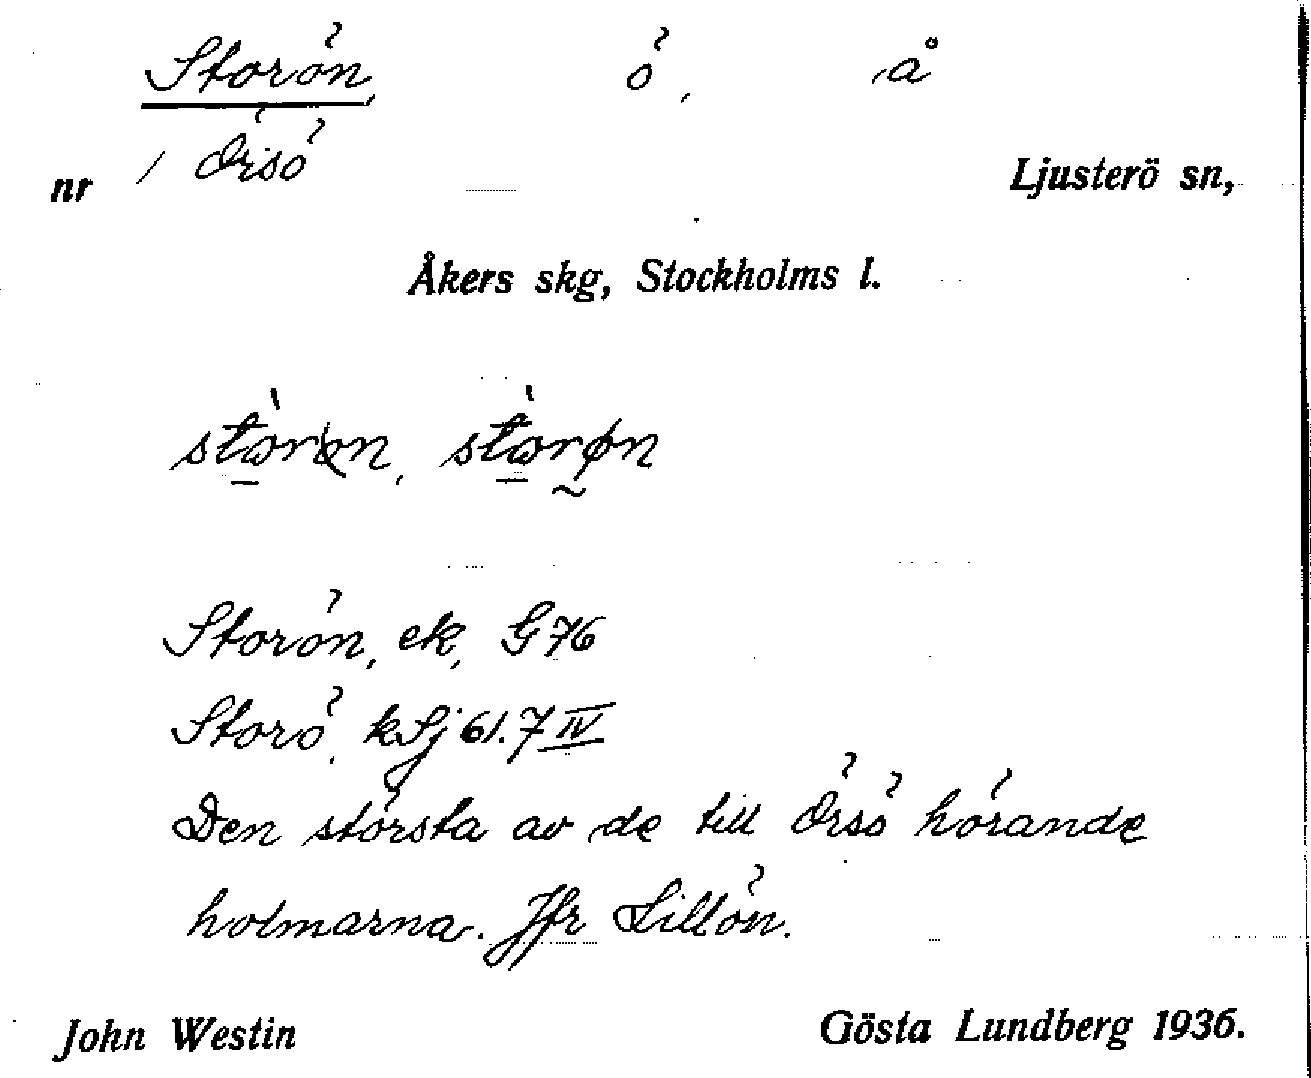 Storön, ö, å
nr 1 Örsö Ljusterö sn,
Åkers skg, Stockholms l.
Storön, ek, G 76
Storö, kSj 61.7 IV
Den största av de till Örsö hörande
holmarna. Jfr Lillön.
John Westin Gösta Lundberg 1936.